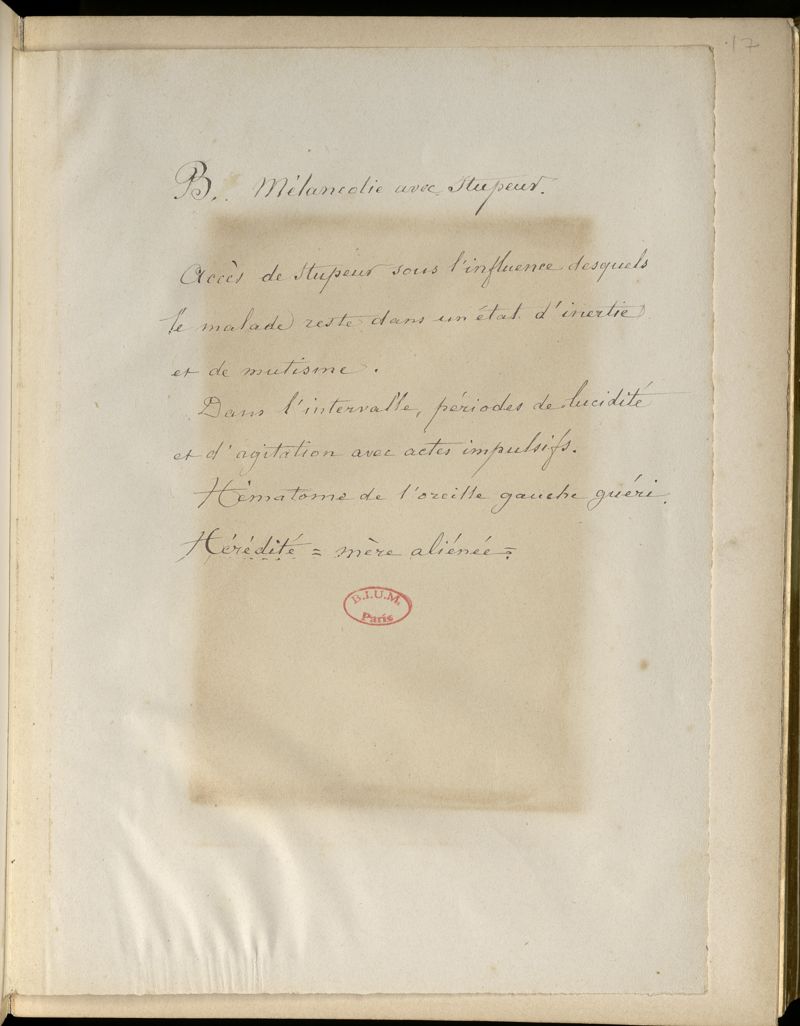 17
B.. Mélancolie avec Stupeur.
Accès de Stupeur sous l'influence desquels
le malade reste dans un état d'inertie
et de mutisme.
Dans l'intervalle, périodes de lucidité
et d'agitation avec actes impulsifs.
Hématome de l'oreille gauche guéri.
Hérédité = mère aliénée =
B.I.U.M.
Paris